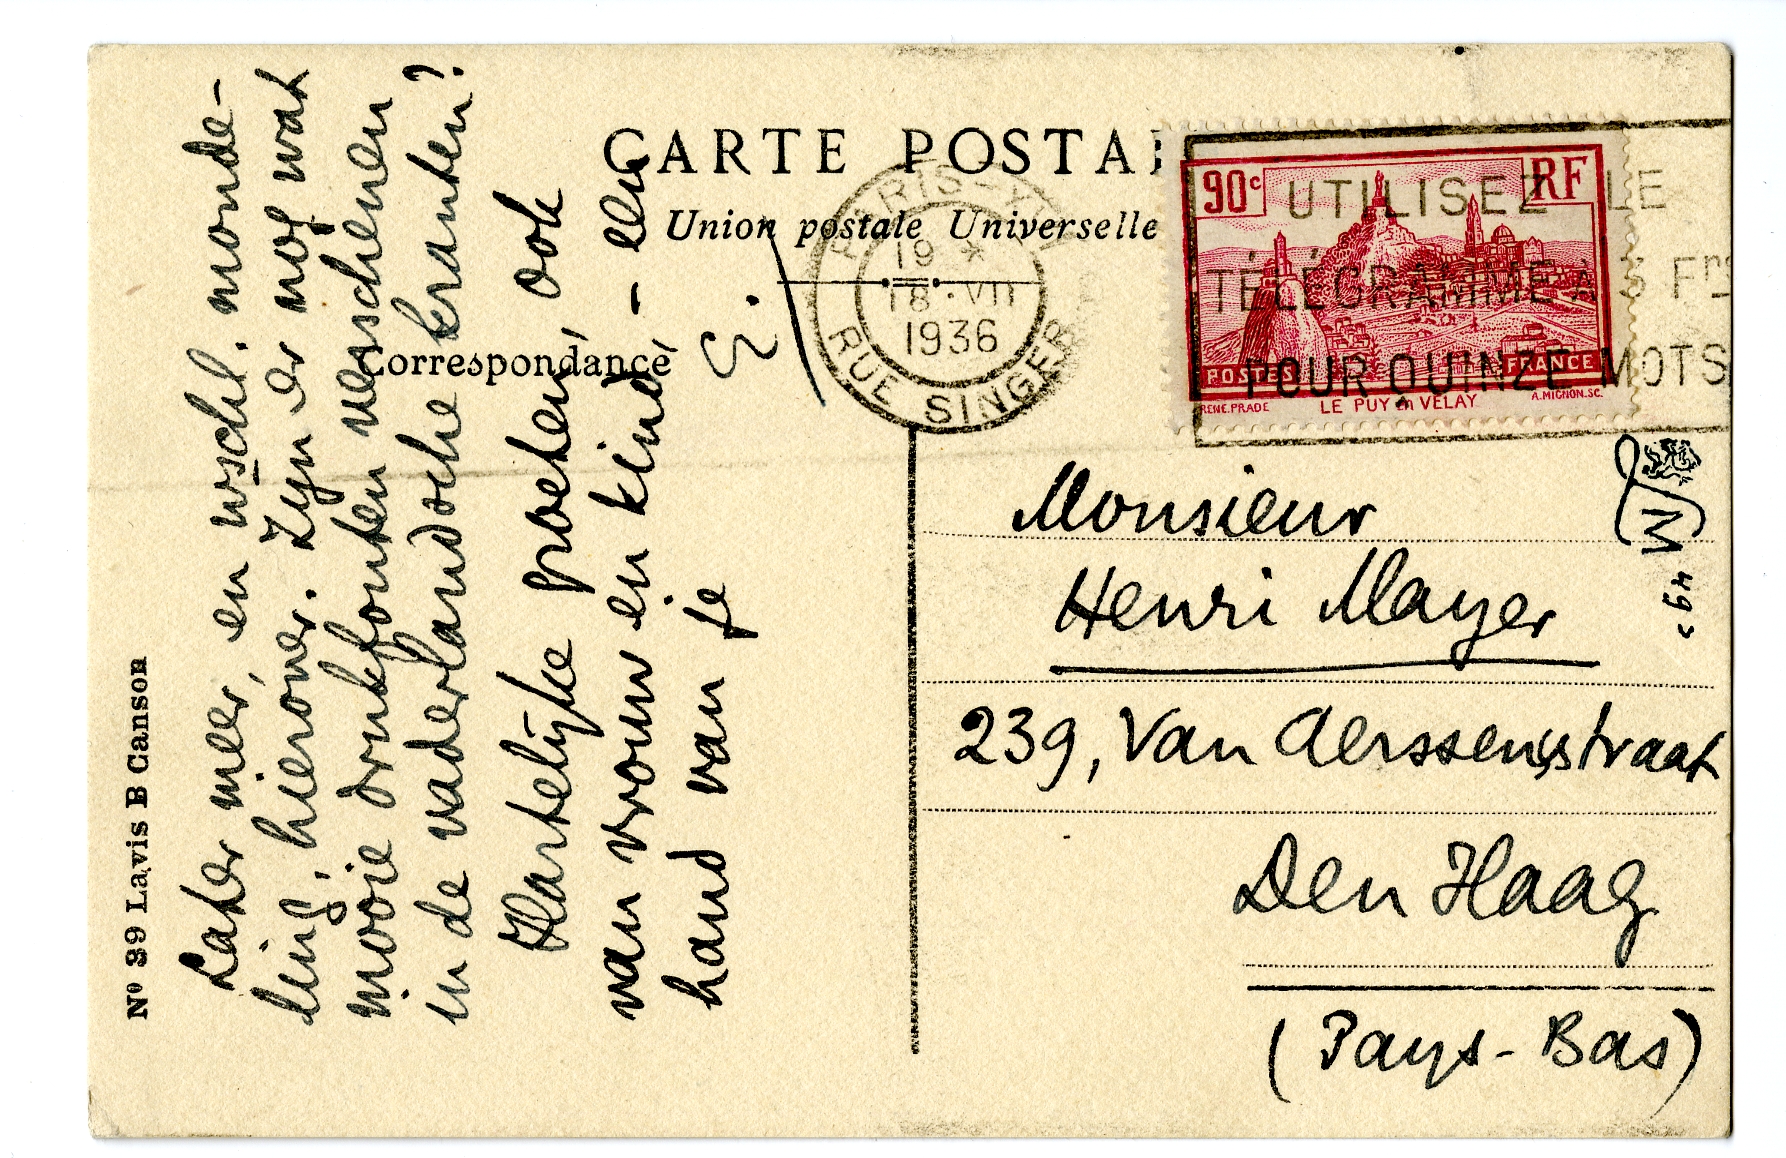 CARTE POSTA
Union postale Universelle
Correspondance
Nº 39 Lavis B Canson
Later meer, en wschl. monde-
ling, hierover. Zijn er nog wat
mooie drukfouten verschenen
in de vaderlandsche kranten?
Hartelijke groeten, ook
van vrouw en kind, – een
hand van je
E.
PARIS-XVI
19 *
18 · VII
1936
RUE SINGER
UTILISEZ LE
TÉLÉGRAMME À 5 Frs
POUR QUINZE MOTS
90c RF
POSTES FRANCE
RENE. PRADE LE PUY en VELAY A. MIGNON. SC.
Monsieur
Henri Mayer
239, Van Aerssenstraat
Den Haag
(Pays-Bas)
M
49